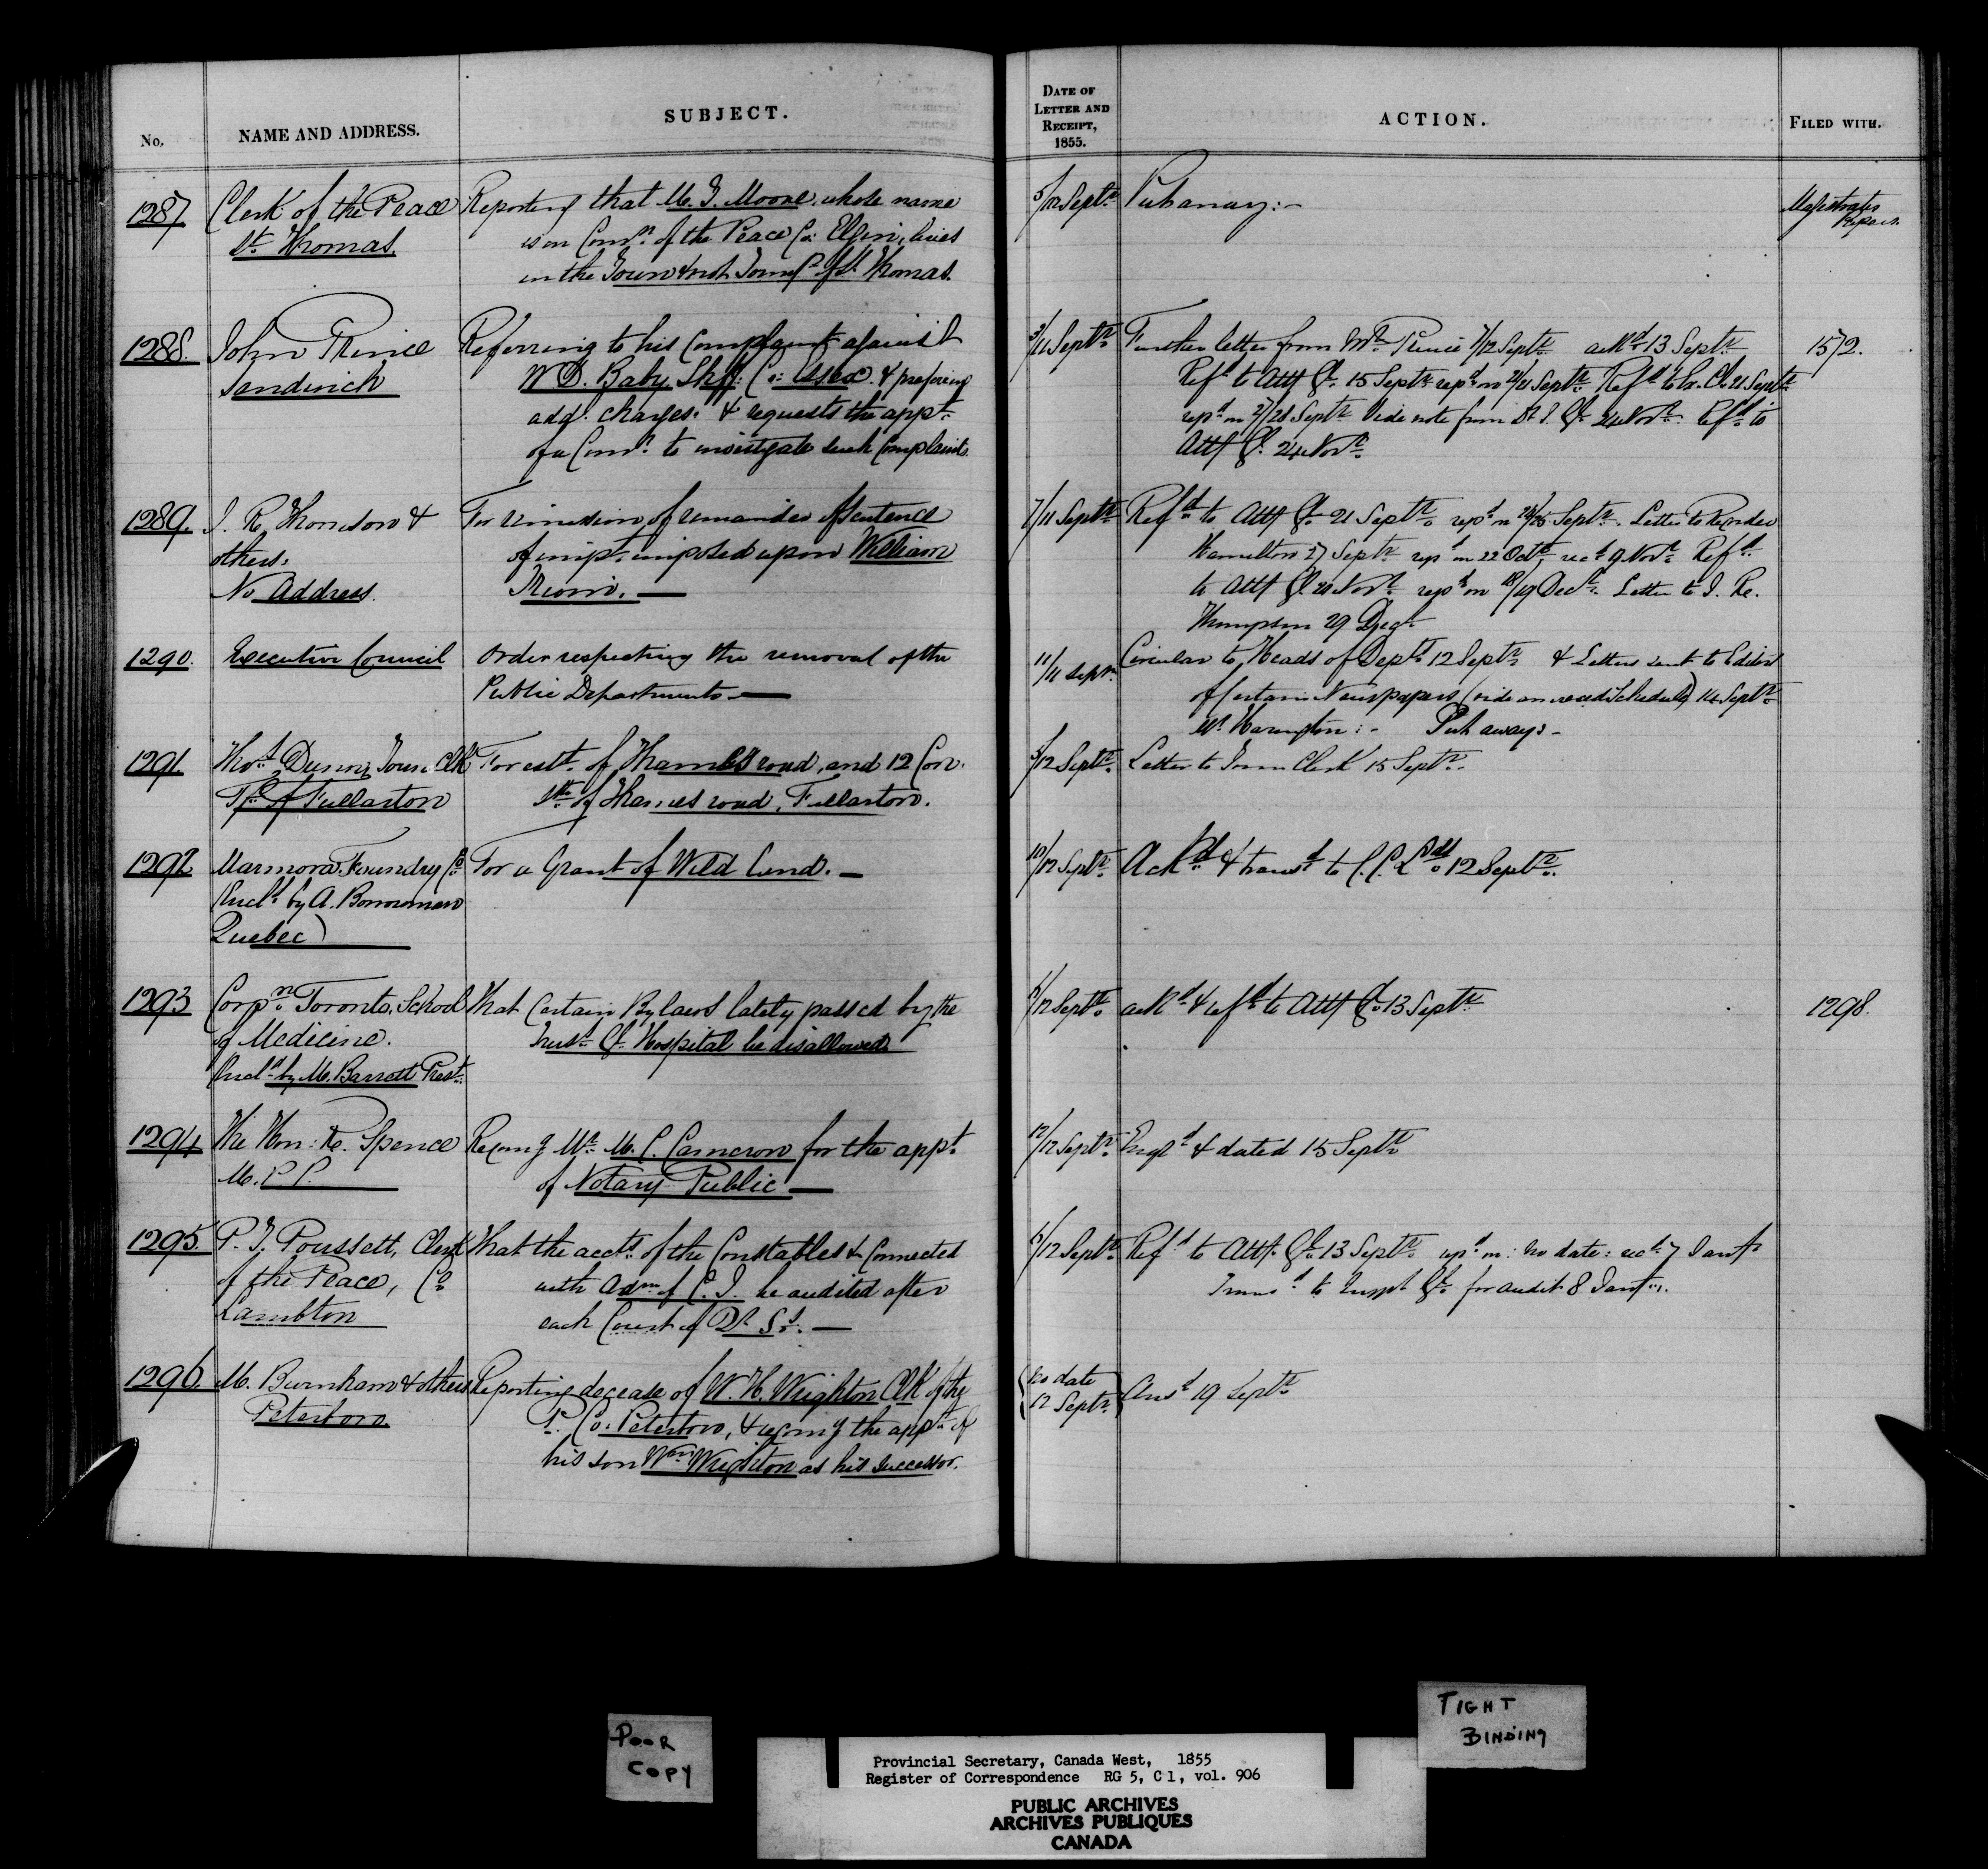 No.
NAME AND ADDRESS.
SUBJECT.
DATE OF
LETTER AND
RECEIPT,
1855.
ACTION.
FILED WITH.
1287
Clerk of the Peace
St. Thomas.
Reporting that M. T. Moore, whose name
is on Comn. of the Peace Co: Elgin, lives
in the Town & not Townsp. of St. Thomas.
5/12 Septr.
Put away:-
Magistrates
1288.
John Prince
Sandwich
Referring to his Complaint against
W. D. Baby Shff: Co: Essex. & prefering
addl. charges. & requests the appt.
of a Comn. to investigate such Complaints.
3/11 Septr.
Further letter from Mr. Prince 7/12 Septr. ackd. 13 Septr.
Refd. to Atty Gl. 15 Septr. repd. on 21/21 Septr. Refd. to Ex. Cl. 21 Septr.
repd. on 27/28 Septr. Vide note from Gl. 24 Novr. Refd. to
Atty Gl. 24 Novr.
1572.
1289.
J. R. Thomson &
others.
No Address.
For remission of remainder of sentence
of impt. imposed upon William
7/11 Septr.
Refd. to Atty Gl. 21 Septr. repd. on Septr. Letter to Recorder
Hamilton 27 Septr. repd. on 22 Octr, recd. 9 Novr. Refd.
to Atty Gl. Novr. repd. on 18/19 Decr. Letter to J. R.
Thompson 29 Decr.
1290.
Executive Council
Order respecting the removal of the
Public Departments —
11/11 Septr.
Circular to Heads of Depts 12 Septr. & Letters sent to Editors
of certain Newspapers (vide annexed Schedule) 14 Septr.
Mr. Harington:- Put away:-
1291.
Thos. Dunn, Town Clk
Tp. of Fullarton
For estt. of Thames road, and 12 Con.
Sth. of Thames road, Fullarton.
/12 Septr.
Letter to Town Clerk 15 Septr.
1292
Marmora Foundry Co.
(Encld. by A. Borrowman
Quebec)
For a Grant of Wild Land. —
10/12 Septr.
Ackd. & transd. to C. C. Lds. 12 Septr.
1293
Corpn. Toronto School
of Medicine.
Encld. by M. Barrett Prest.
That Certain Bylaws lately passed by the
Trust. Gl. Hospital be disallowed.
/12 Septr.
ackd. & refd. to Atty Gl. 13 Septr.
1298.
1294
The Hon: R. Spence
M. P. P.
Recomg Mr. M. C. Cameron for the appt.
of Notary Public —
12/12 Septr.
Engd. & dated 15 Septr.
1295.
P. T. Poussett, Clerk
of the Peace, Co.
Lambton
That the accts. of the Constables & Connected
with Adm of C. J. be audited after
each Court of Qr. Ss. —
/12 Septr.
Refd. to Atty. Gl. 13 Septr. repd. on: no date: recd. 7 Jany.
Transd. to Inspr. Gl. for audit 8 Jany.
1296.
M. Burnham & others
Peterboro
Reporting decease of W. H. Wrighton Clk of the
P. Co. Peterboro, & recomg the appt. of
his son Wm. Wrighton as his successor.
No date
12 Septr.
Ansd. 19 Septr.
POOR
COPY
TIGHT
BINDING
Provincial Secretary, Canada West, 1855
Register of Correspondence RG 5, C 1, vol. 906
PUBLIC ARCHIVES
ARCHIVES PUBLIQUES
CANADA